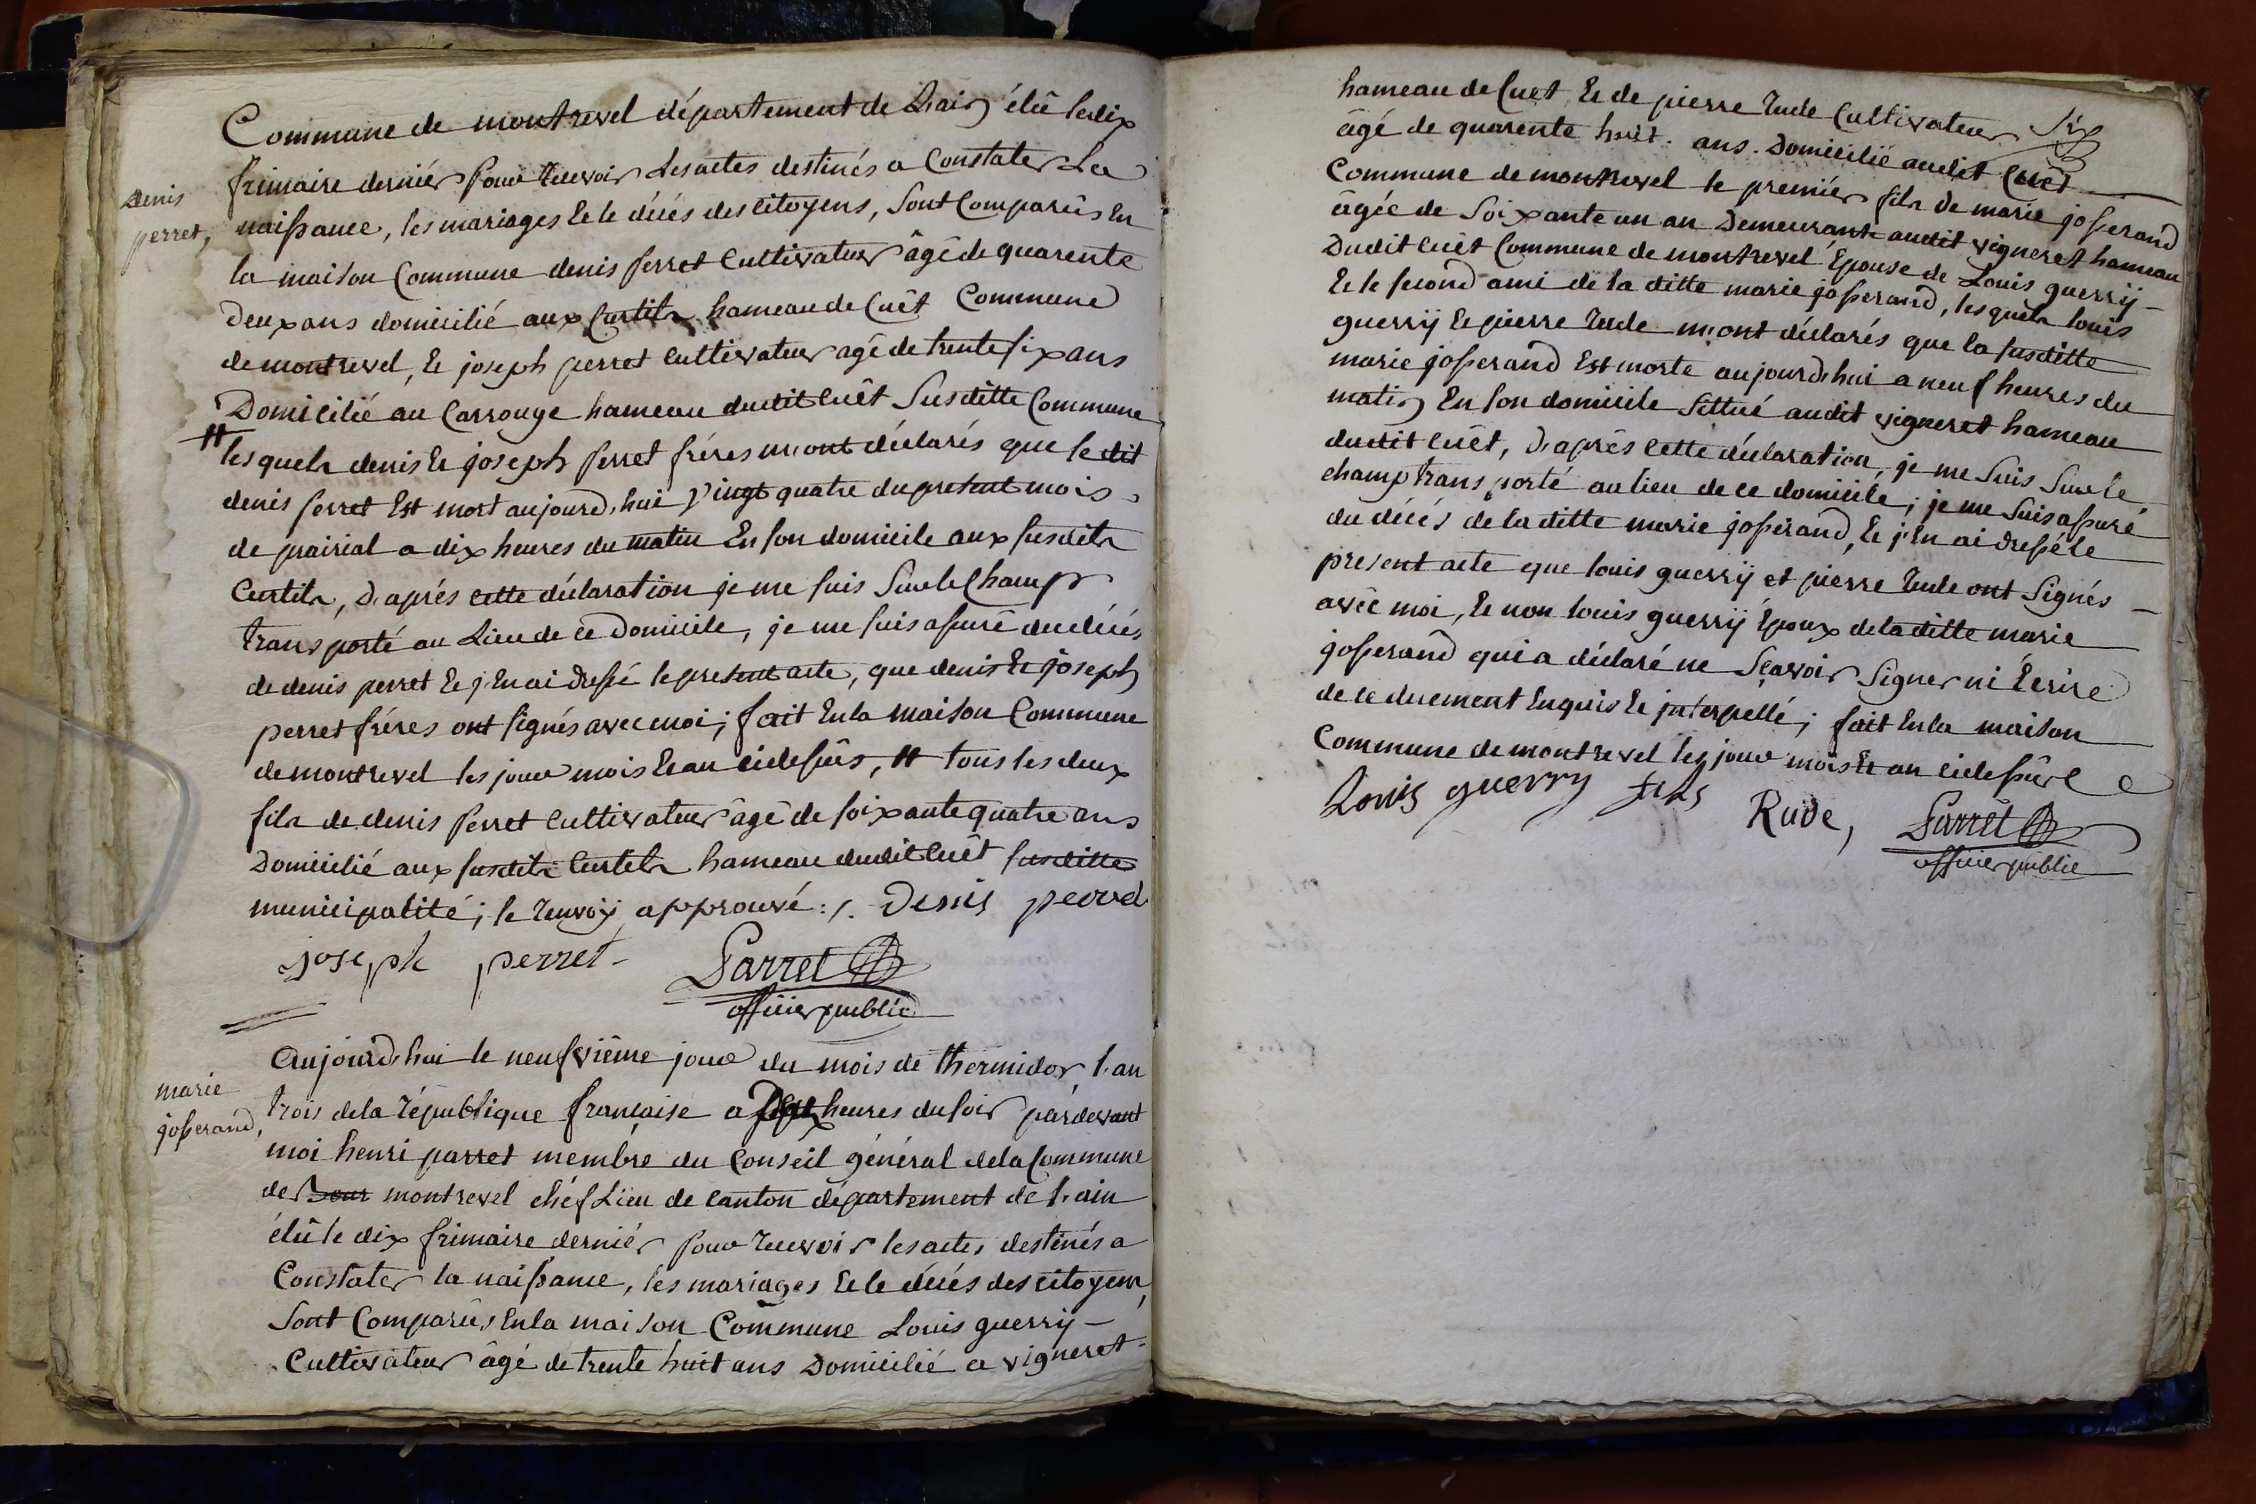 Commune de montrevel département de L'ain élû le dix
denis
perret,
frimaire dernier pour recevoir Les actes destinés a Constater La
naissance, les mariages et le décés des citoyens, Sont Comparûs En
la maison Commune denis perret Cultivateur âgé de quarente
Deux ans domicilié aux Curtils hameau de Cuêt Commune
de montrevel, et joseph perret Cultivateur agé de trente six ans
Domicilié au Carrouge hameau dudit cuêt Susditte Commune
# lesquels denis et joseph perret fréres m'ont déclarés que le dit
denis perret Est mort aujourd'hui vingt quatre du present mois
de prairial a dix heures du matin En son domicile aux susdits
Curtils, d'aprés cette déclaration je me suis Sur le Champ
transporté au Lieu de ce Domicile, je me suis assuré du décés
de denis perret et j'En ai dressé le present acte, que denis et joseph
perret fréres ont signés avec moi; fait En la maison Commune
de montrevel les jour mois et an cidessûs, # tous les deux
fils de denis perret cultivateur âgé de soixante quatre ans
Domicilié aux susdits Curtils hameau dudit Cuêt susditte
municipalité; le renvoÿ approuvé :/. Denis perret
joseph perret Parret
officier public
Aujourd'hui le neufvième jour du mois de thermidor, l'an
marie
josserand,
trois de la république française a heures du soir pardevant
moi henri parret membre du Conseil général de la Commune
de montrevel chéf Lieu de canton département de l'ain
élû le dix frimaire dernier pour recevoir les actes destinés a
Constater la naissance, les mariages et le décés des citoyens,
Sont Comparûs En la maison Commune Louis guerrÿ
Cultivateur âgé de trente huit ans Domicilié a vigneret
hameau de Cuet, et de pierre rude Cultivateur
âgé de quarente huit ans Domicilié audit Cuet
Commune de montrevel le premiér fils de marie josserand
âgée de Soixante un an Demeurant audit vigneret hameau
Dudit Cuêt Commune de montrevel Épouse de Louis guerrÿ
et le second ami de la ditte marie josserand, lesquels louis
guerrÿ et pierre rude m'ont déclarés que la susditte
marie josserand Est morte aujourd'hui a neuf heures du
matin En son domicile Sittué audit vigneret hameau
dudit Cuêt, d'aprés cette déclaration, je me Suis Sur le
champ transporté au lieu de ce domicile; je me Suis assuré
du décés de la ditte marie josserand, et j'En ai dressé le
present acte que louis guerrÿ et pierre rude ont Signés
avéc moi, et non louis guerrÿ Époux de la ditte marie
josserand qui a déclaré ne Sçavoir Signer ni Ecrire
de ce duement Enquis et interpellé; fait En la maison
Commune de montrevel les jour mois et an cidessûs
Louis guerry fils Rude, Parret
officier public